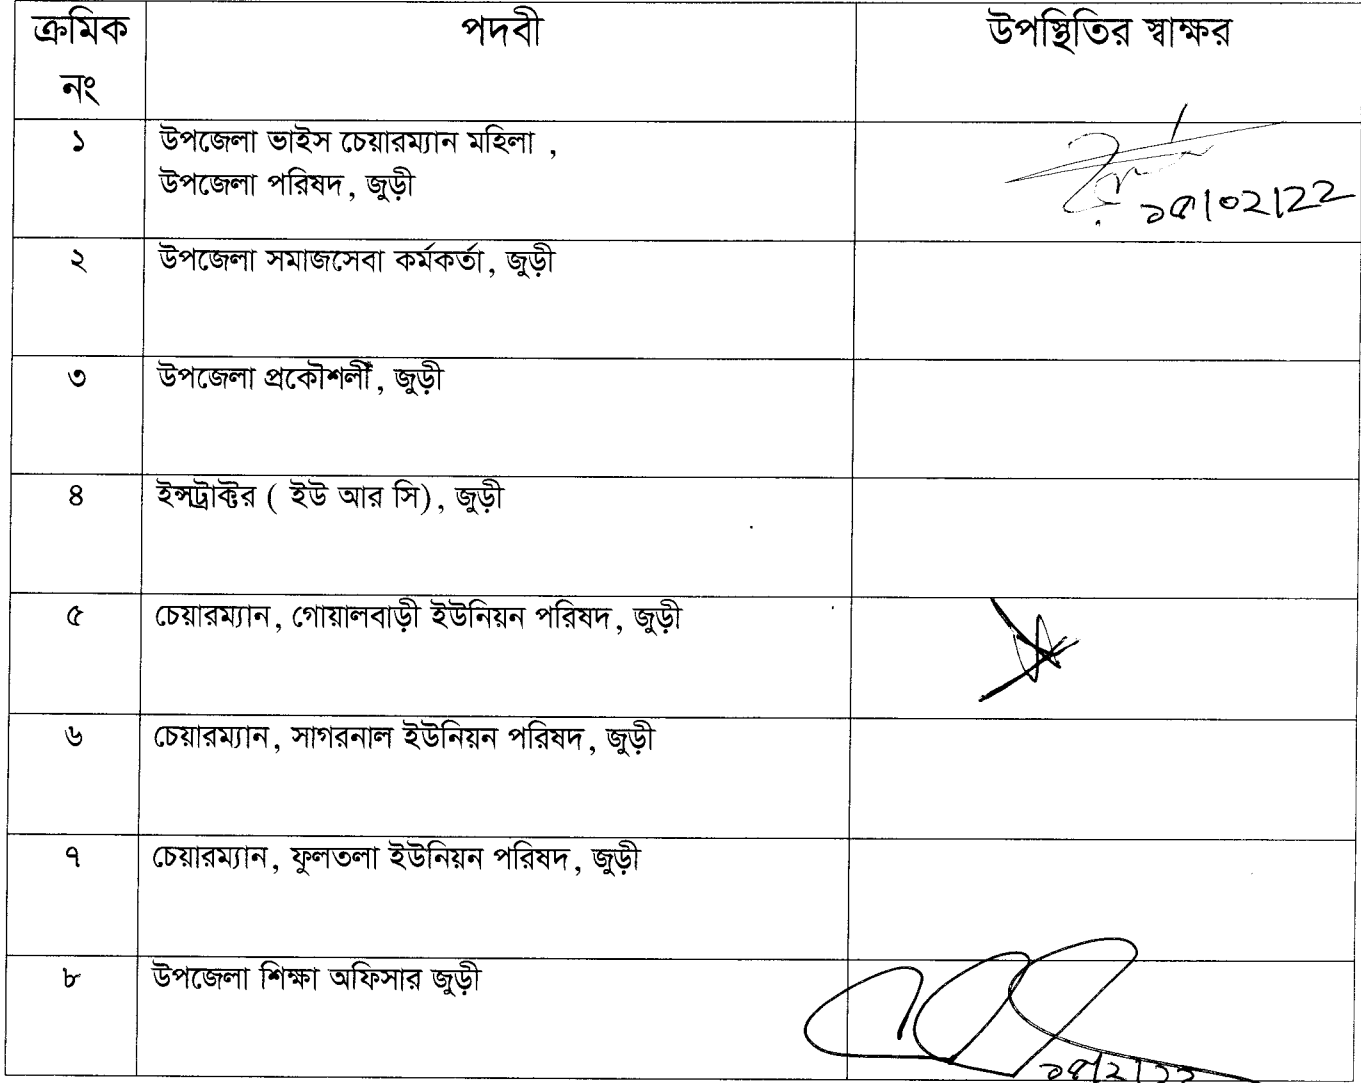 ক্রমিক নং পদবী উপস্থিতির স্বাক্ষর
১ উপজেলা ভাইস চেয়ারম্যান মহিলা ,
উপজেলা পরিষদ, জুড়ী
১৫/০২/22
২ উপজেলা সমাজসেবা কর্মকর্তা, জুড়ী
৩ উপজেলা প্রকৌশলী, জুড়ী
৪ ইন্সট্রাক্টর ( ইউ আর সি), জুড়ী
৫ চেয়ারম্যান, গোয়ালবাড়ী ইউনিয়ন পরিষদ, জুড়ী
৬ চেয়ারম্যান, সাগরনাল ইউনিয়ন পরিষদ, জুড়ী
৭ চেয়ারম্যান, ফুলতলা ইউনিয়ন পরিষদ, জুড়ী
৮ উপজেলা শিক্ষা অফিসার জুড়ী